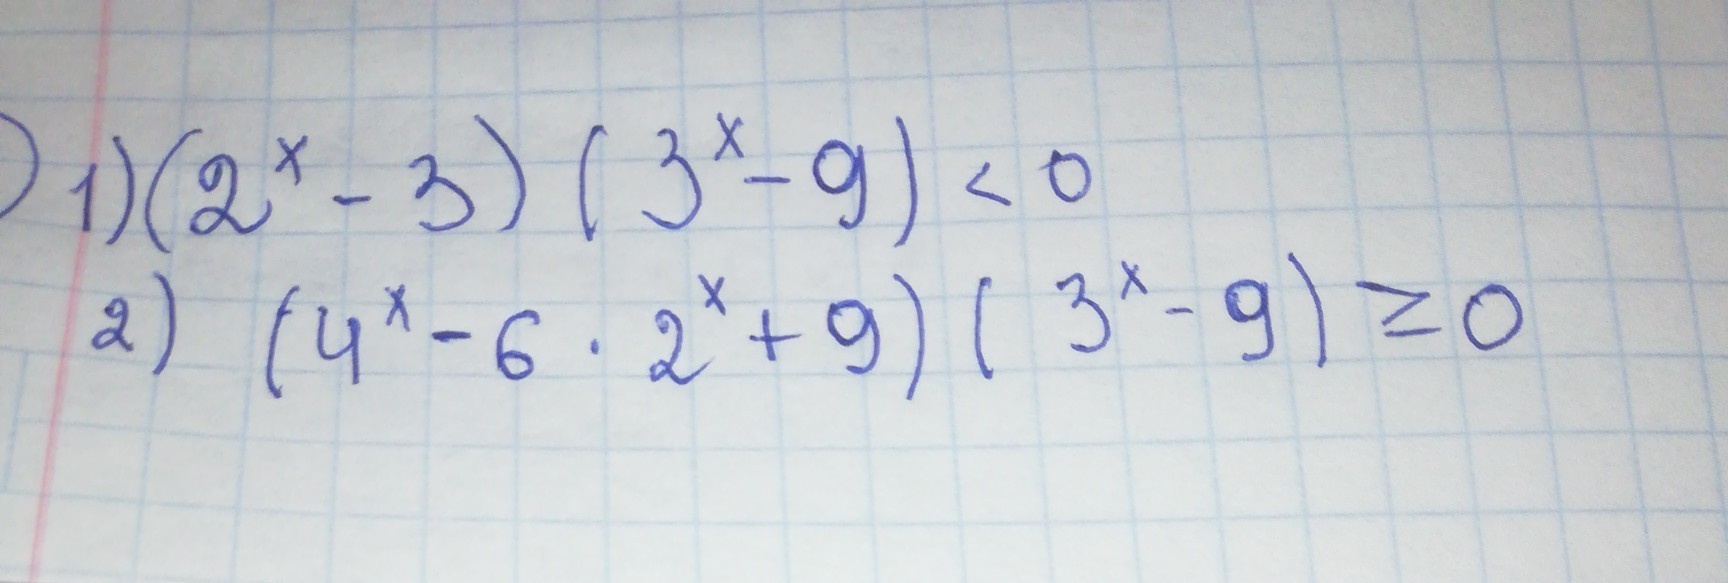 ) 1) (2ˣ - 3) (3ˣ - 9) < 0
2) (4ˣ - 6 · 2ˣ + 9) (3ˣ - 9) ≥ 0